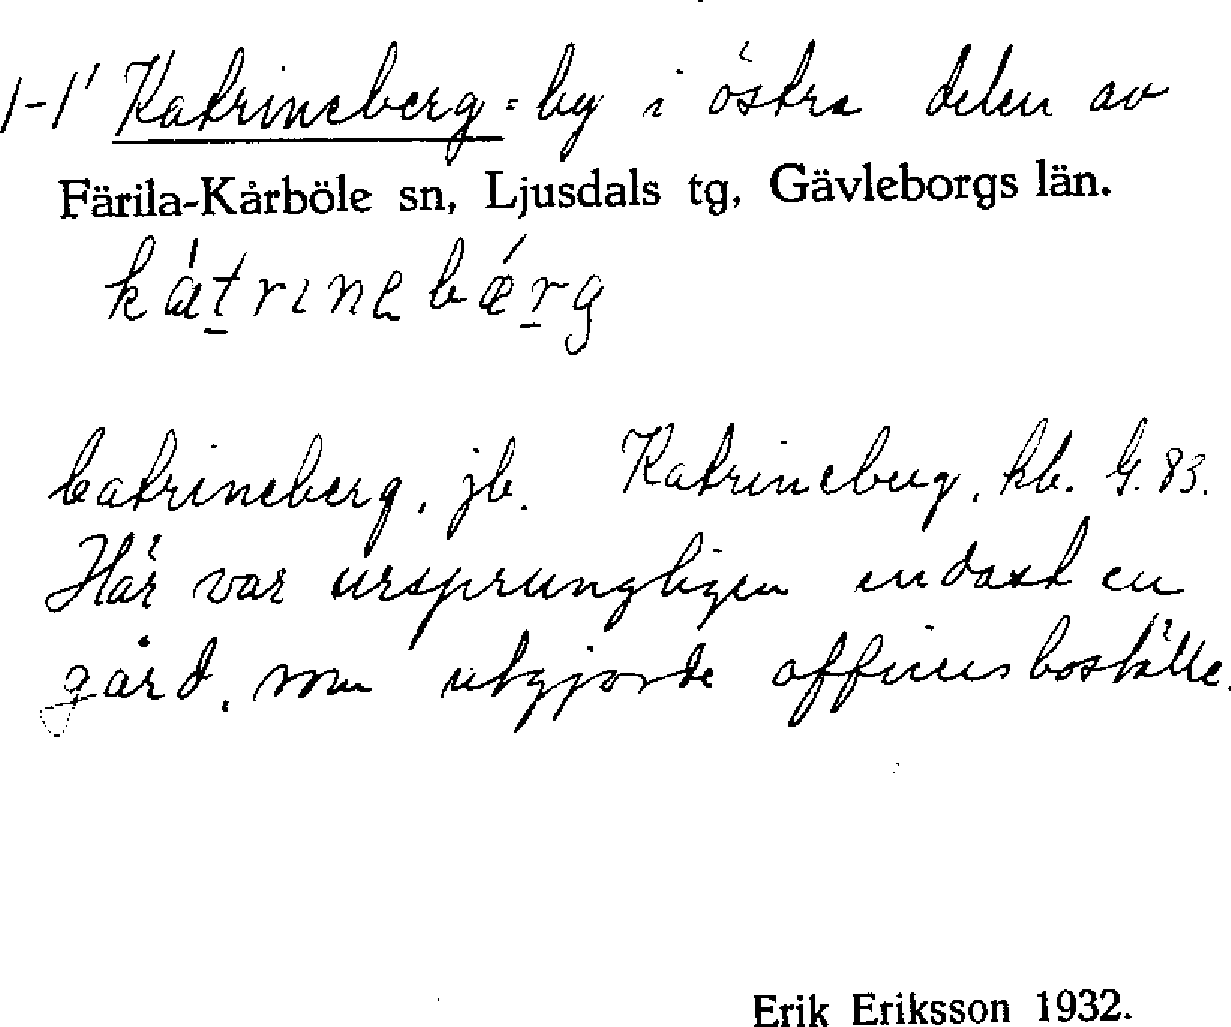 1-1' Katrineberg = by i östra delen av
Färila-Kårböle sn, Ljusdals tg, Gävleborgs län.
kátrinebǽrg
Catrineberg, jb. Katrineberg, kb. G. 83.
Här var ursprungligen endast en
gård, som utgjorde officersboställe.
Erik Eriksson 1932.